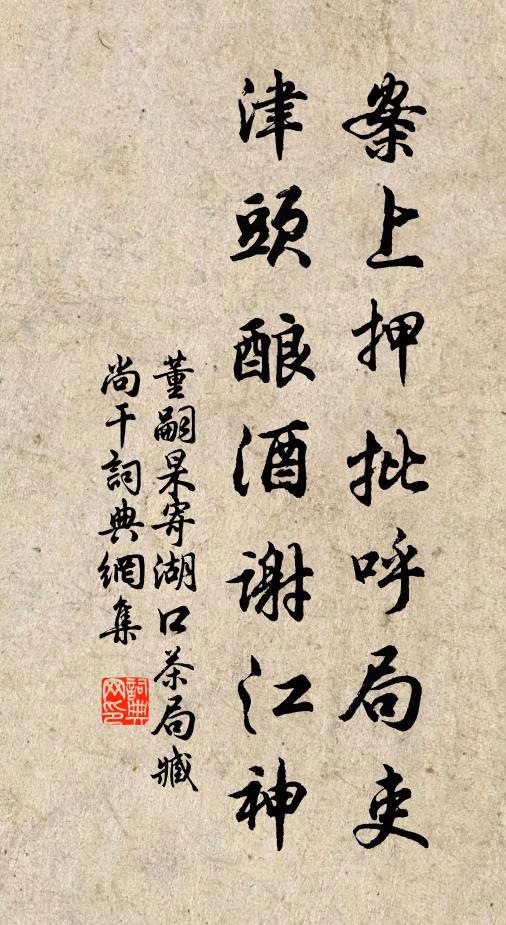 案上押批呼局吏
津頭酿酒谢江神
董嗣杲寄湖口茶局臧
尚干詞典網集
詞典
网印